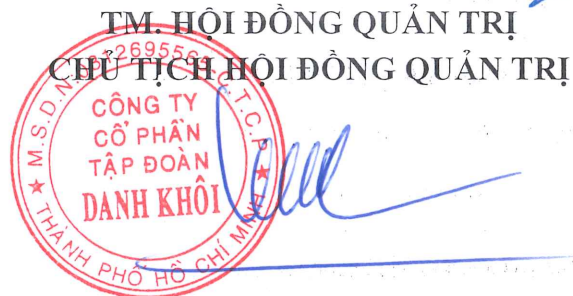 TM. HỘI ĐỒNG QUẢN TRỊ
CHỦ TỊCH HỘI ĐỒNG QUẢN TRỊ
M.S.D.N: C.T.C.P
CÔNG TY
CỔ PHẦN
TẬP ĐOÀN
DANH KHÔI
THÀNH PHỐ HỒ CHÍ MINH